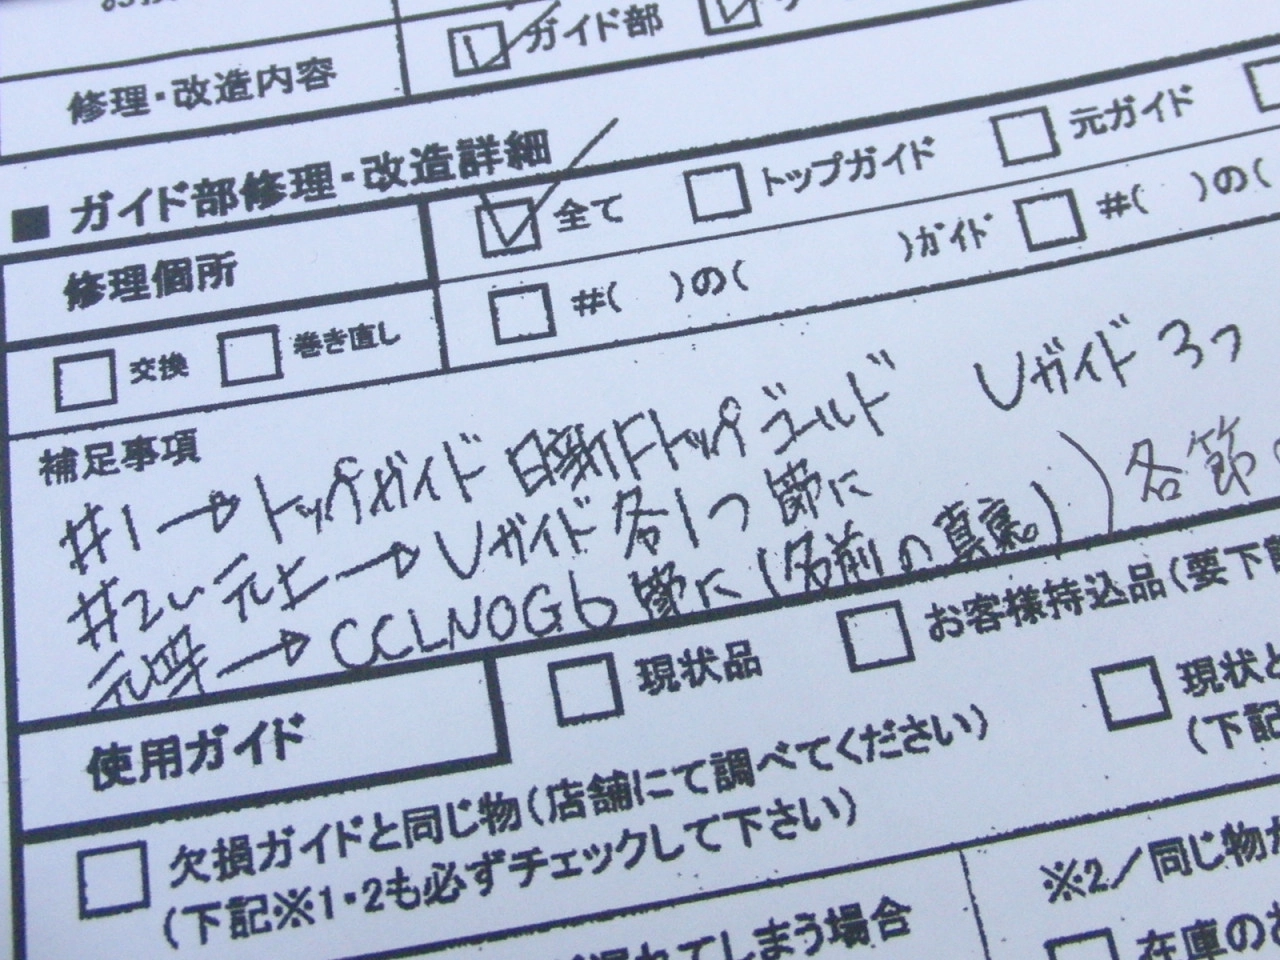 修理・改造内容 ガイド部
■ ガイド部修理・改造詳細
修理個所 全て トップガイド 元ガイド
#( )の( )ガイド #( )の(
交換 巻き直し
補足事項
#1→トップガイド 日新Fトップゴールド Uガイド3つ
#2い元上→Uガイド各1つ 節に
元竿→CCLNOG6 節に(名前の真裏。) 各節
使用ガイド 現状品 お客様持込品(要下記
欠損ガイドと同じ物(店舗にて調べてください) 現状と
(下記※1・2も必ずチェックして下さい) (下記
てしまう場合 ※2/同じ物が
在庫のあ